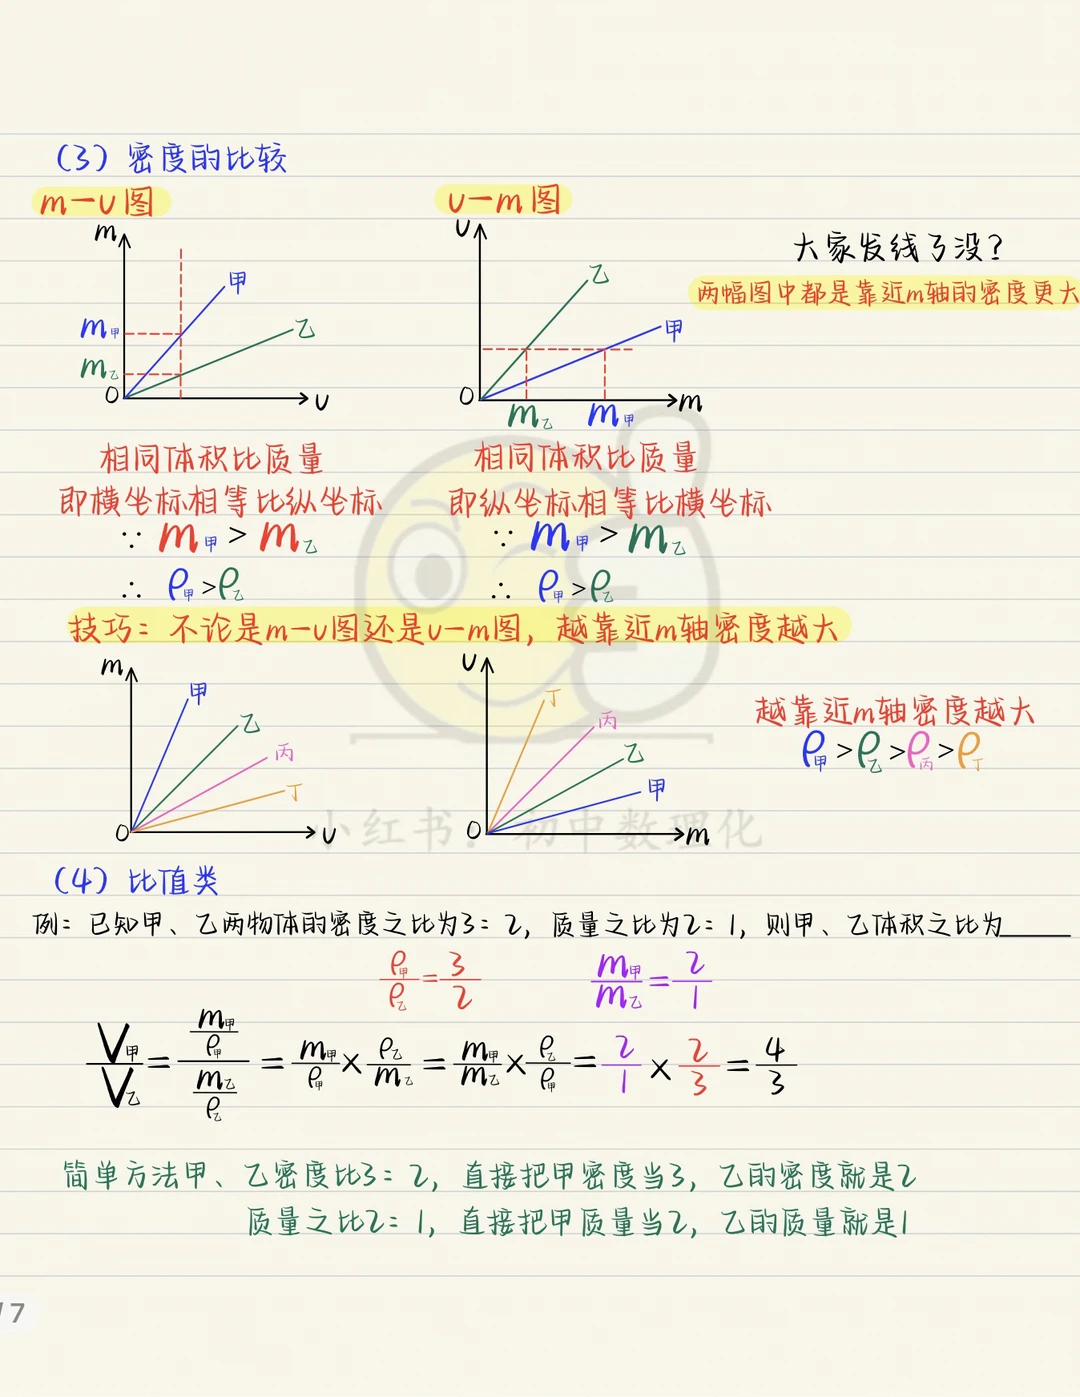 （3）密度的比较
m-v图
v-m图
m
甲
乙
m甲
m乙
0
v
v
乙
甲
0
m乙
m甲
m
大家发线了没？
两幅图中都是靠近m轴的密度更大
相同体积比质量
即横坐标相等比纵坐标
∵ m甲 > m乙
∴ ρ甲>ρ乙
相同体积比质量
即纵坐标相等比横坐标
∵ m甲 > m乙
∴ ρ甲>ρ乙
技巧：不论是m-v图还是v-m图，越靠近m轴密度越大
m
甲
乙
丙
丁
0
v
v
丁
丙
乙
甲
0
m
越靠近m轴密度越大
ρ甲>ρ乙>ρ丙>ρ丁
小红书：初中数理化
（4）比值类
例：已知甲、乙两物体的密度之比为3：2，质量之比为2：1，则甲、乙体积之比为____
ρ甲/ρ乙=3/2 m甲/m乙=2/1
V甲/V乙=(m甲/ρ甲)/(m乙/ρ乙)=m甲/ρ甲×ρ乙/m乙=m甲/m乙×ρ乙/ρ甲=2/1×2/3=4/3
简单方法甲、乙密度比3：2，直接把甲密度当3，乙的密度就是2
质量之比2：1，直接把甲质量当2，乙的质量就是1
/7